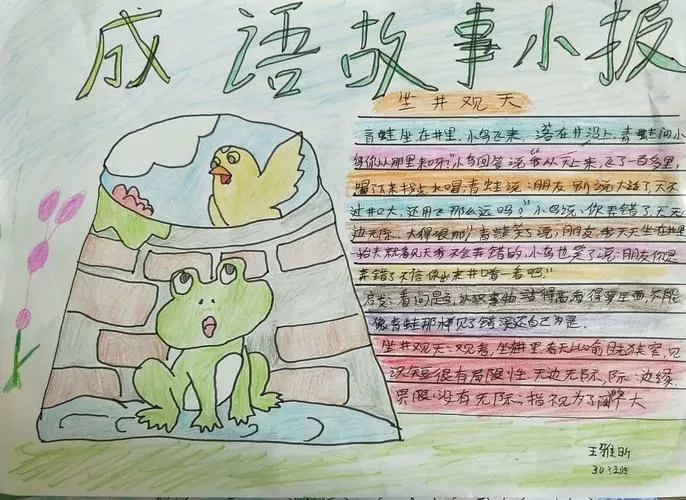 成语故事小报
坐井观天
青蛙坐在井里,小鸟飞来,落在井沿上,青蛙问小
鸟你从那里来呀,"小鸟回答说"我从天上来,飞了一百多里,
喝了水来找点水喝青蛙说:朋友,别说大话了天不
过井口大,还用飞那么远吗?"小鸟说,你弄错了,天无
边无际,大得很哪!青蛙笑了说:朋友,我天天坐在井里
抬头就看见天我不会弄错的,小鸟也笑了说:朋友你是
弄错了不信你出来井口看一看吧"
启发:看问题,认识事物,站得高看得更全面,不能
像青蛙那样见了错误还自己为是.
坐井观天:观看,坐井里,看天比喻眼光狭窄,见
识短很有局限性.无边无际,际:边缘,
界限.没有无际;指视为了阔大
王雅昕